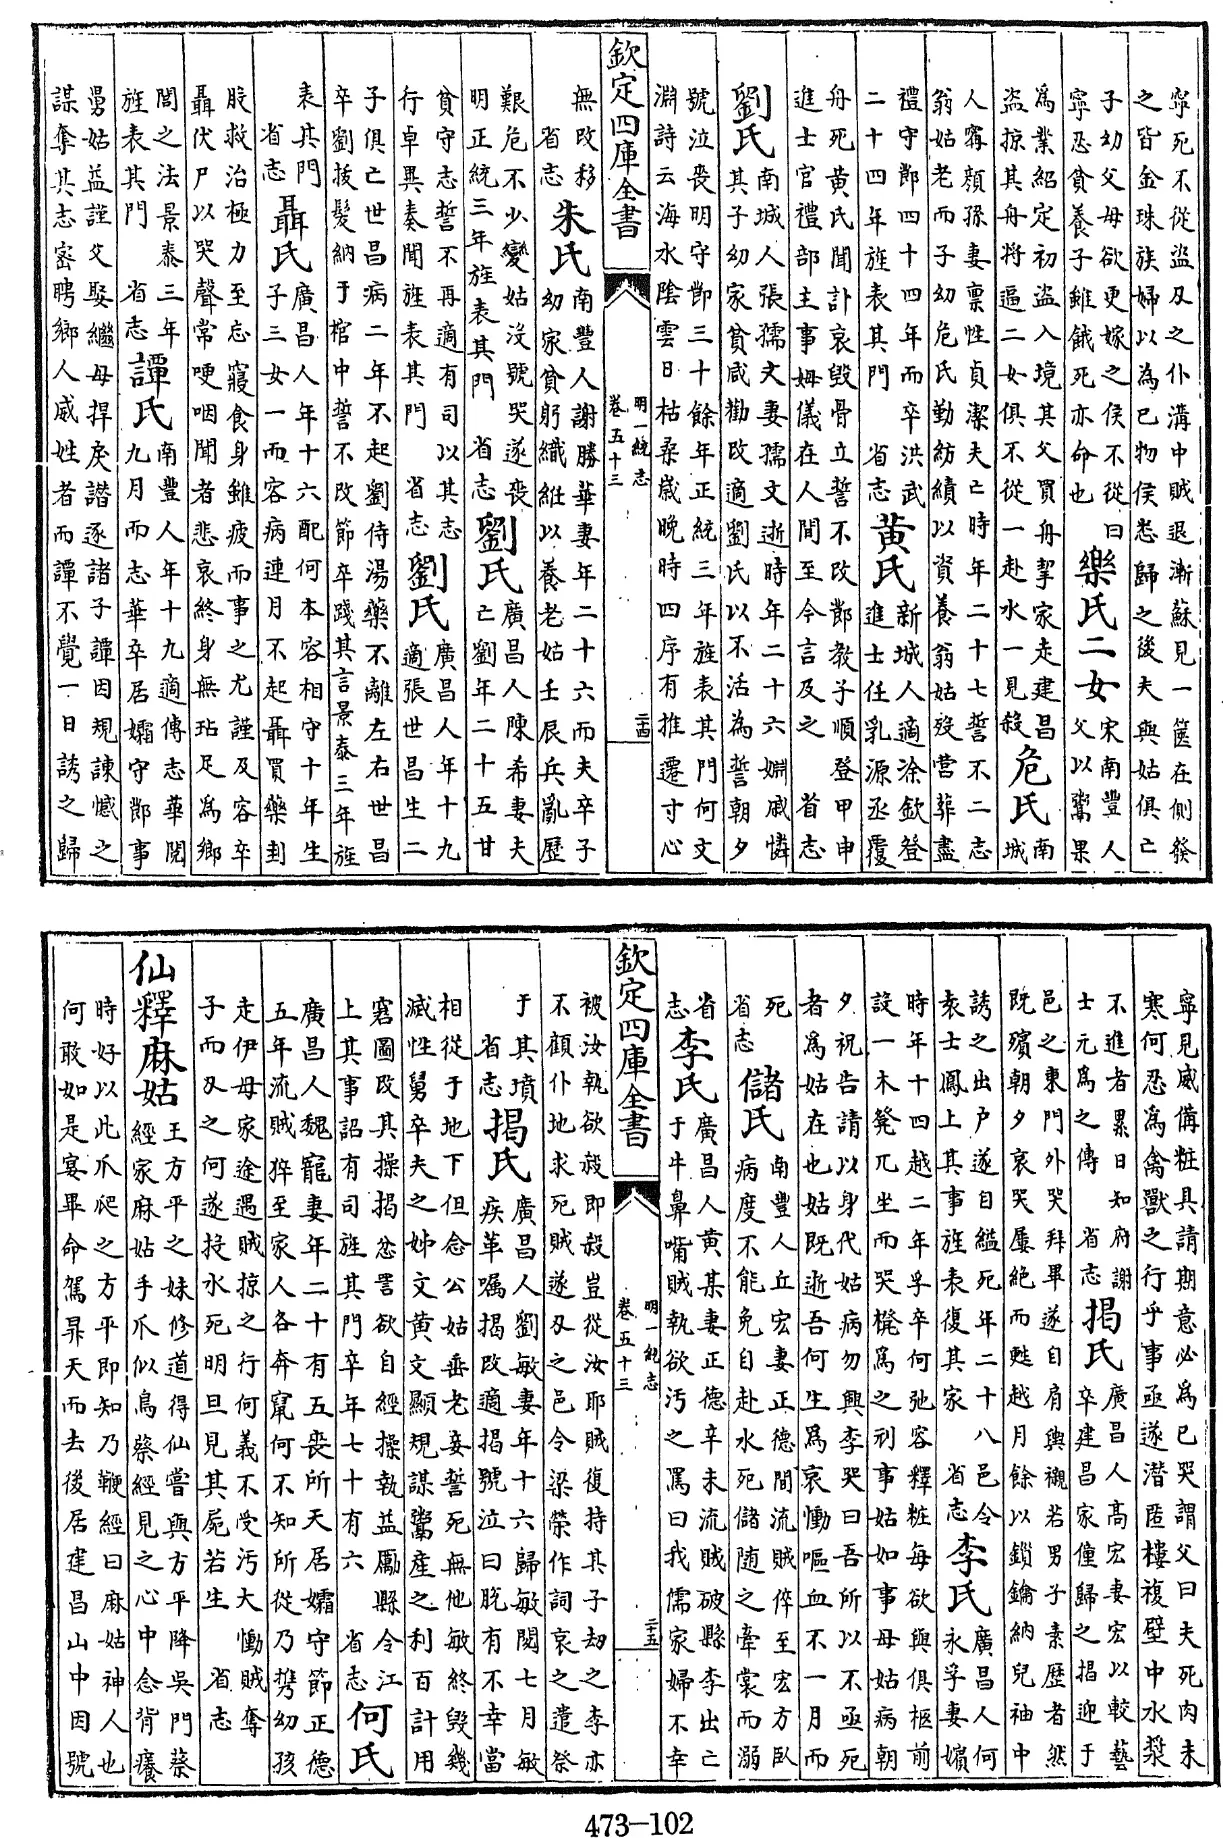 寧死不從盜及之仆溝中賊退漸蘇見一篋在側發
之皆金珠族婦以為已物侯悉歸之後夫與姑俱亡
子幼父母欲更嫁之侯不從曰
寧忍貧養子雖餓死亦命也
樂氏二女
宋南豐人
父以鬻果
為業紹定初盜入境其父買舟挈家走建昌
盜掠其舟將逼二女俱不從一赴水一見殺
危氏
南
城
人甯顏孫妻稟性貞潔夫亡時年二十七誓不二志
翁姑老而子幼危氏勤紡績以資養翁姑歿營葬盡
禮守節四十四年而卒洪武
二十四年旌表其門 省志
黃氏
新城人適凃欽登
進士任乳源丞覆
舟死黃氏聞訃哀毀骨立誓不改節教子順登甲申
進士官禮部主事姆儀在人間至今言及之 省志
劉氏
南城人張孺文妻孺文逝時年二十六婣戚憐
其子幼家貧咸勸改適劉氏以不活為誓朝夕
號泣喪明守節三十餘年正統三年旌表其門何文
淵詩云海水陰雲日枯桑歲晚時四序有推遷寸心
欽定四庫全書
明一統志
卷五十三
二十四
無改移
省志
朱氏
南豐人謝勝華妻年二十六而夫卒子
幼家貧躬織絍以養老姑壬辰兵亂歷
艱危不少變姑沒號哭遂喪
明正統三年旌表其門 省志
劉氏
廣昌人陳希妻夫
亡劉年二十五甘
貧守志誓不再適有司以其志
行卓異奏聞旌表其門 省志
劉氏
廣昌人年十九
適張世昌生二
子俱亡世昌病二年不起劉侍湯藥不離左右世昌
卒劉拔髮納于棺中誓不改節卒踐其言景泰三年旌
表其門
省志
聶氏
廣昌人年十六配何本容相守十年生
子三女一而容病連月不起聶買藥刲
股救治極力至忘寢食身雖疲而事之尤謹及容卒
聶伏尸以哭聲常哽咽聞者悲哀終身無玷足為鄉
閭之法景泰三年
旌表其門 省志
譚氏
南豐人年十九適傅志華閱
九月而志華卒居孀守節事
舅姑益謹父娶繼母捍戾譖逐諸子譚因規諫憾之
謀奪其志密聘鄉人戚姓者而譚不覺一日誘之歸
寧見戚備粧具請期意必為已哭謂父曰夫死肉未
寒何忍為禽獸之行乎事亟遂潛匿樓複壁中水漿
不進者累日知府謝
士元為之傳 省志
揭氏
廣昌人高宏妻宏以較藝
卒建昌家僮歸之揭迎于
邑之東門外哭拜畢遂自肩輿襯若男子素歷者然
既殯朝夕哀哭屢絕而甦越月餘以鎖鑰納兒袖中
誘之出户遂自縊死年二十八邑令
袁士鳳上其事旌表復其家 省志
李氏
廣昌人何
永孚妻嬪
時年十四越二年孚卒何弛容釋粧每欲與俱柩前
設一木凳兀坐而哭櫈為之刓事姑如事母姑病朝
夕祝告請以身代姑病勿興李哭曰吾所以不亟死
者為姑在也姑既逝吾何生為哀慟嘔血不一月而
死
省志
儲氏
南豐人丘宏妻正德間流賊倅至宏方臥
病度不能免自赴水死儲随之牽裳而溺
省
志
李氏
廣昌人黃某妻正德辛未流賊破縣李出亡
于牛鼻嘴賊執欲污之罵曰我儒家婦不幸
欽定四庫全書
明一統志
卷五十三
二十五
被汝執欲殺即殺豈從汝耶賊復持其子刼之李亦
不顧仆地求死賊遂刄之邑令梁榮作詞哀之遣祭
于其墳
省志
揭氏
廣昌人劉敏妻年十六歸敏閱七月敏
疾革嘱揭改適揭號泣曰脱有不幸當
相從于地下但念公姑垂老妾誓死無他敏終毀幾
滅性舅卒夫之姊文黃文顯規謀鬻產之利百計用
窘圖改其操揭忿詈欲自經操執益勵縣令江
上其事詔有司旌其門卒年七十有六 省志
何氏
廣昌人魏寵妻年二十有五喪所天居孀守節正德
五年流賊猝至家人各奔竄何不知所從乃携幼孩
走伊母家途遇賊掠之行何義不受污大慟賊奪
子而刄之何遂投水死明旦見其屍若生 省志
仙釋
麻姑
王方平之妹修道得仙嘗與方平降吳門蔡
經家麻姑手爪似鳥蔡經見之心中念背癢
時好以此爪爬之方平即知乃鞭經曰麻姑神人也
何敢如是宴畢命駕昇天而去後居建昌山中因號
473—102